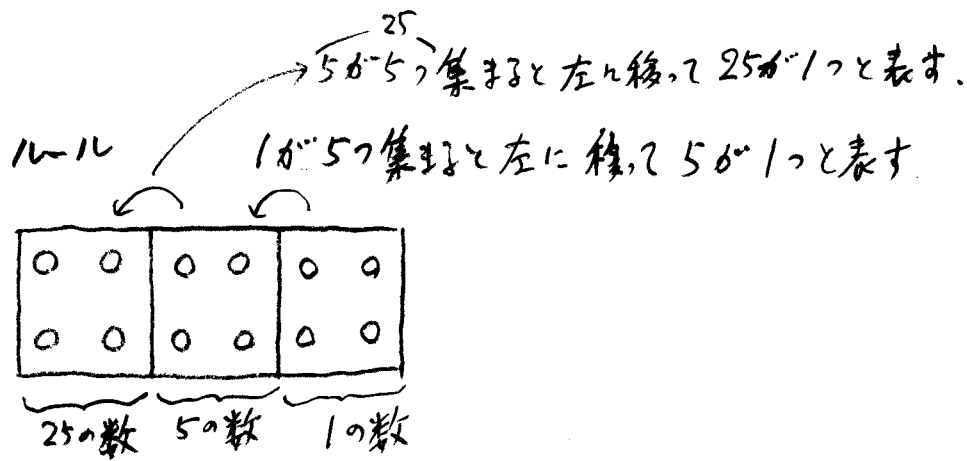 25
5が5つ集まると左に移って25が1つと表す.
ルール
1が5つ集まると左に移って5が1つと表す
25の数 5の数 1の数